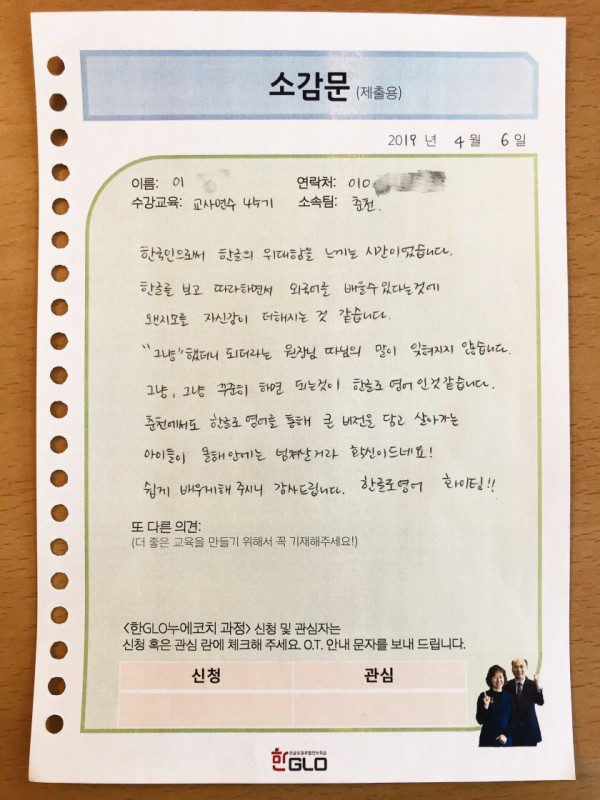 소감문 (제출용)
2019 년 4 월 6 일
이름: 이
연락처: 010
수강교육: 교사연수 45기
소속팀: 춘천
한국인으로써 한글의 위대함을 느끼는 시간이었습니다.
한글를 보고 따라하면서 외국어를 배울수있다는것에
왠지모를 자신감이 더해지는 것 같습니다.
"그냥" 했더니 되더라는 원장님 따님의 말이 잊혀지지 않습니다.
그냥, 그냥 꾸준히 하면 되는것이 한글로 영어인것같습니다.
춘천에서도 한글로 영어를 통해 큰 비전을 담고 살아가는
아이들이 올해안에는 넘쳐날거라 확신이드네요!
쉽게 배우게해 주시니 감사드립니다. 한글로영어 화이팅!!
또 다른 의견:
(더 좋은 교육을 만들기 위해서 꼭 기재해주세요!)
<한GLO누에코치 과정> 신청 및 관심자는
신청 혹은 관심 란에 체크해 주세요. O.T. 안내 문자를 보내 드립니다.
신청 관심
한GLO